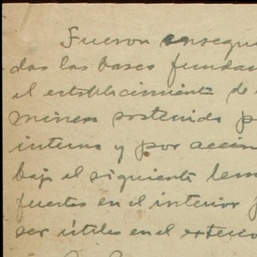 Fueron ensegui
das las bases funda
el establecimiento de
minera sostenida p
interno y por accio
bajo el siguiente lem
fuertes en el interior p
ser útiles en el exterio